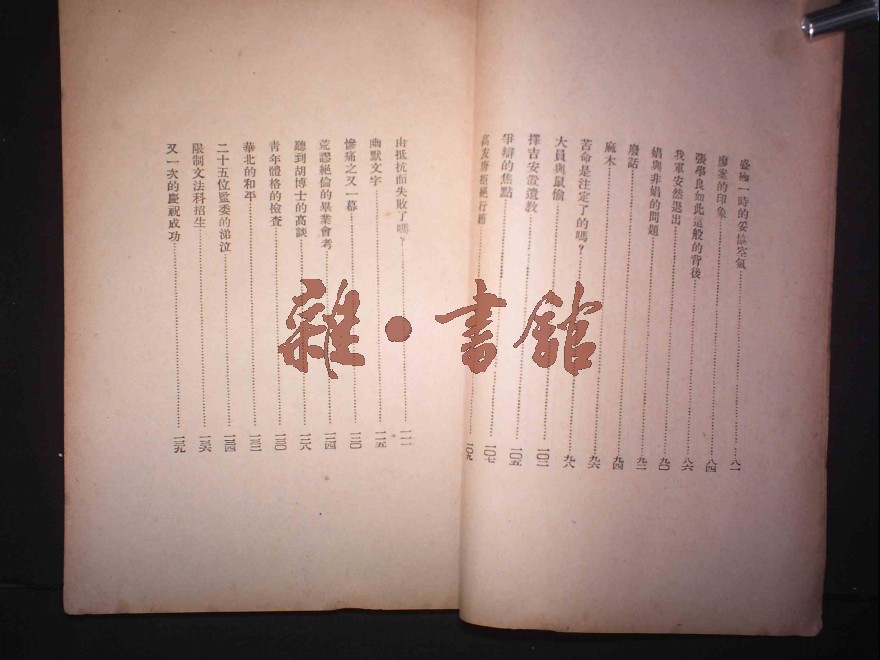 盛極一時的妥協空氣……八一
廖案的印象……八四
張學良如此這般的背後……八六
我軍安然退出……九〇
娼與非娼的問題……九二
廢話……九四
麻木……九六
苦命是注定了的嗎?……九八
大員與鼠偷
擇吉安設遺教……一〇二
爭辯的焦點……一〇五
高友唐拒絕行賄……一〇七
一〇九
由抵抗而失敗了嗎?……一一一
幽默文字……一一五
慘痛之又一幕……一二〇
荒謬絕倫的畢業會考……一二四
聽到胡博士的高談……一二八
青年體格的檢查……一三〇
華北的和平……一三二
二十五位監委的涕泣……一三四
限制文法科招生……一三六
又一次的慶祝成功……一三九
雜·書館